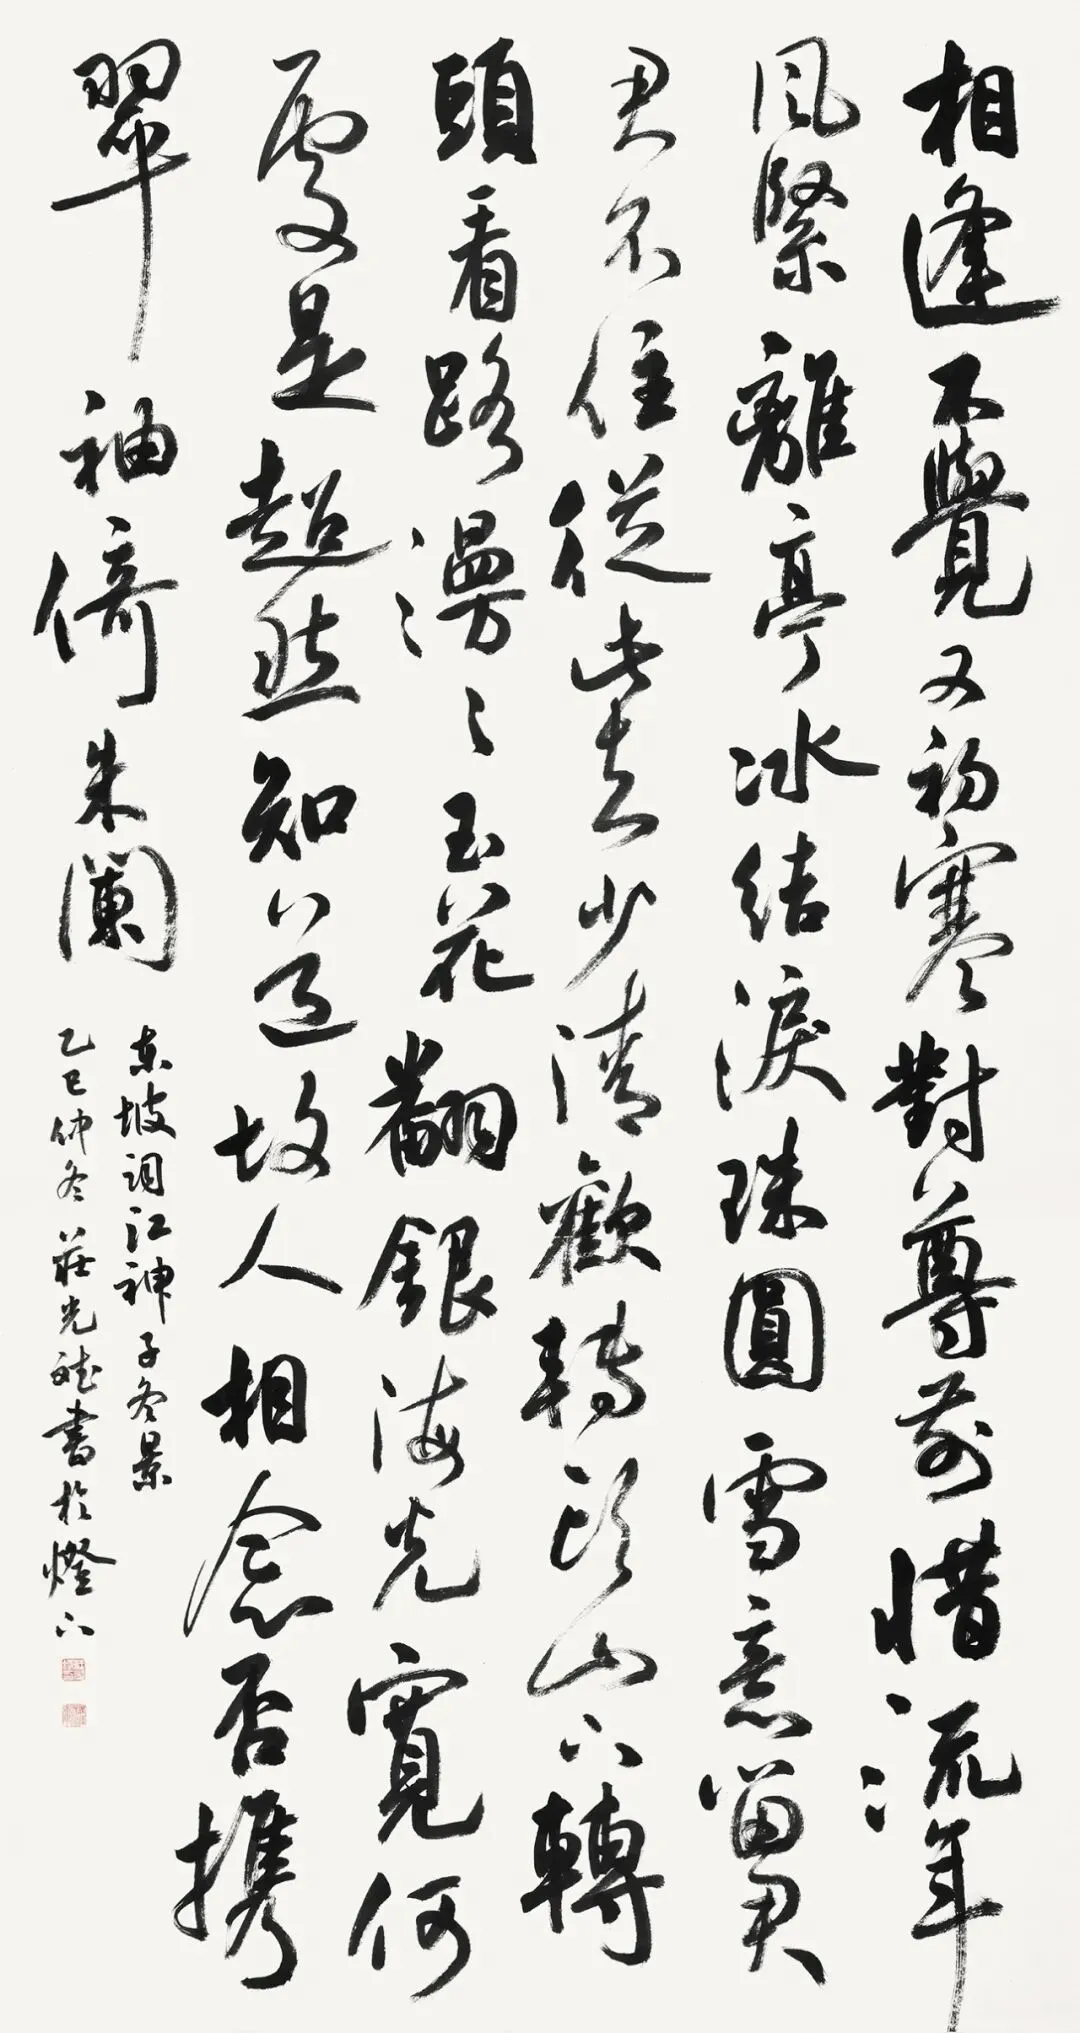 相逢不覺又初寒對尊前惜流年
風緊離亭冰結淚珠圓雪意留君
君不住從此去少清歡轉頭山下轉
頭看路漫〻玉花翻銀海光寬何
處是超然知道故人相念否攜
翠袖倚朱闌
東坡詞江神子冬景
乙巳仲冬莊光斌書於燈下